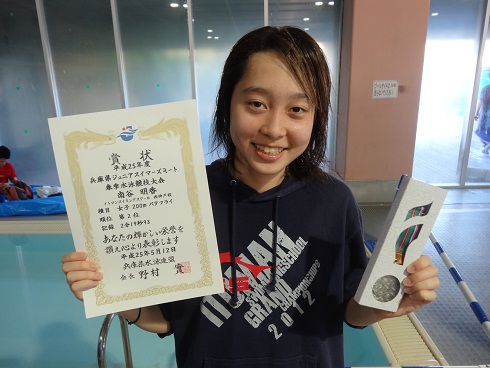 賞状
平成25年度
兵庫県ジュニアスイマーズミート
春季水泳競技大会
南谷 明香
種目 女子 200m バタフライ
順位 第2位
記録 2分19秒93
あなたの輝かしい栄誉を
讃え心より表彰します
平成25年5月12日
兵庫県水泳連盟
会長 野村
ITOMAN
SWIMMING SCHOOL
GRAND
CHAMPIONSHIPS
2012